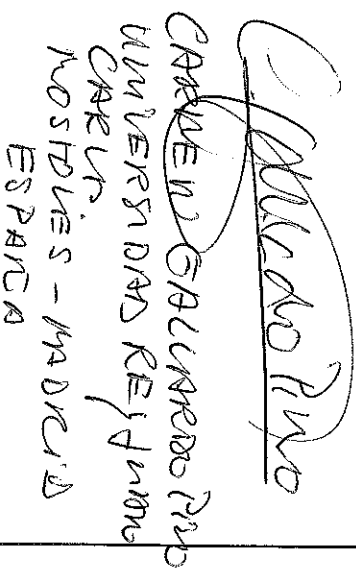 C. Gallardo Pino
CARMEN GALLARDO PINO
UNIVERSIDAD REY JUAN
CARLOS
MOSTOLES - MADRID
ESPAÑA